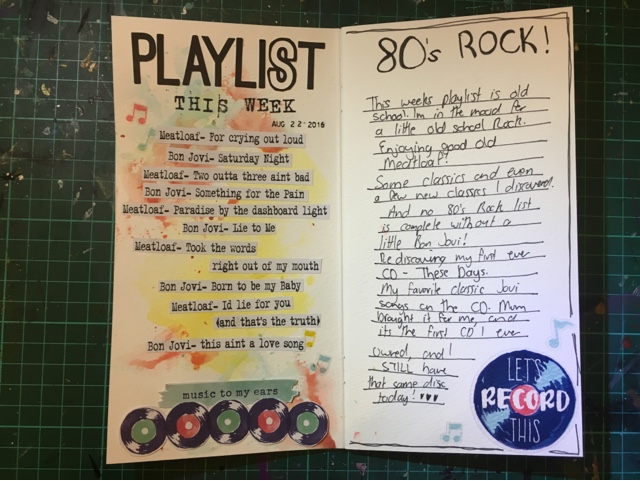 PLAYLIST
THIS WEEK
AUG 22 2016
Meatloaf- For crying out loud
Bon Jovi- Saturday Night
Meatloaf- Two outta three aint bad
Bon Jovi- Something for the Pain
Meatloaf- Paradise by the dashboard light
Bon Jovi- Lie to Me
Meatloaf- Took the words
right out of my mouth
Bon Jovi- Born to be my Baby
Meatloaf- Id lie for you
(and that's the truth)
Bon Jovi- this aint a love song
music to my ears
80's ROCK!
This weeks playlist is old
school. I'm in the mood for
a little old school Rock.
Enjoying good old
Meatloaf!!
Some classics and even
a few new classics I discovered.
And no 80's Rock list
is complete without a
little Bon Jovi!
Rediscovering my first ever
CD - These Days.
My favorite classic Jovi
songs on the CD. Mum
brought it for me, and
its the first CD I ever
owned, and I
STILL have
that same disc
today! ♥♥♥
LET'S
RECORD
THIS